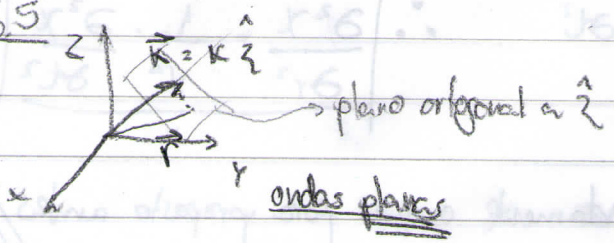 Z
k⃗ = k ξ̂
plano ortogonal a ξ̂
r⃗
x
Y
ondas planas